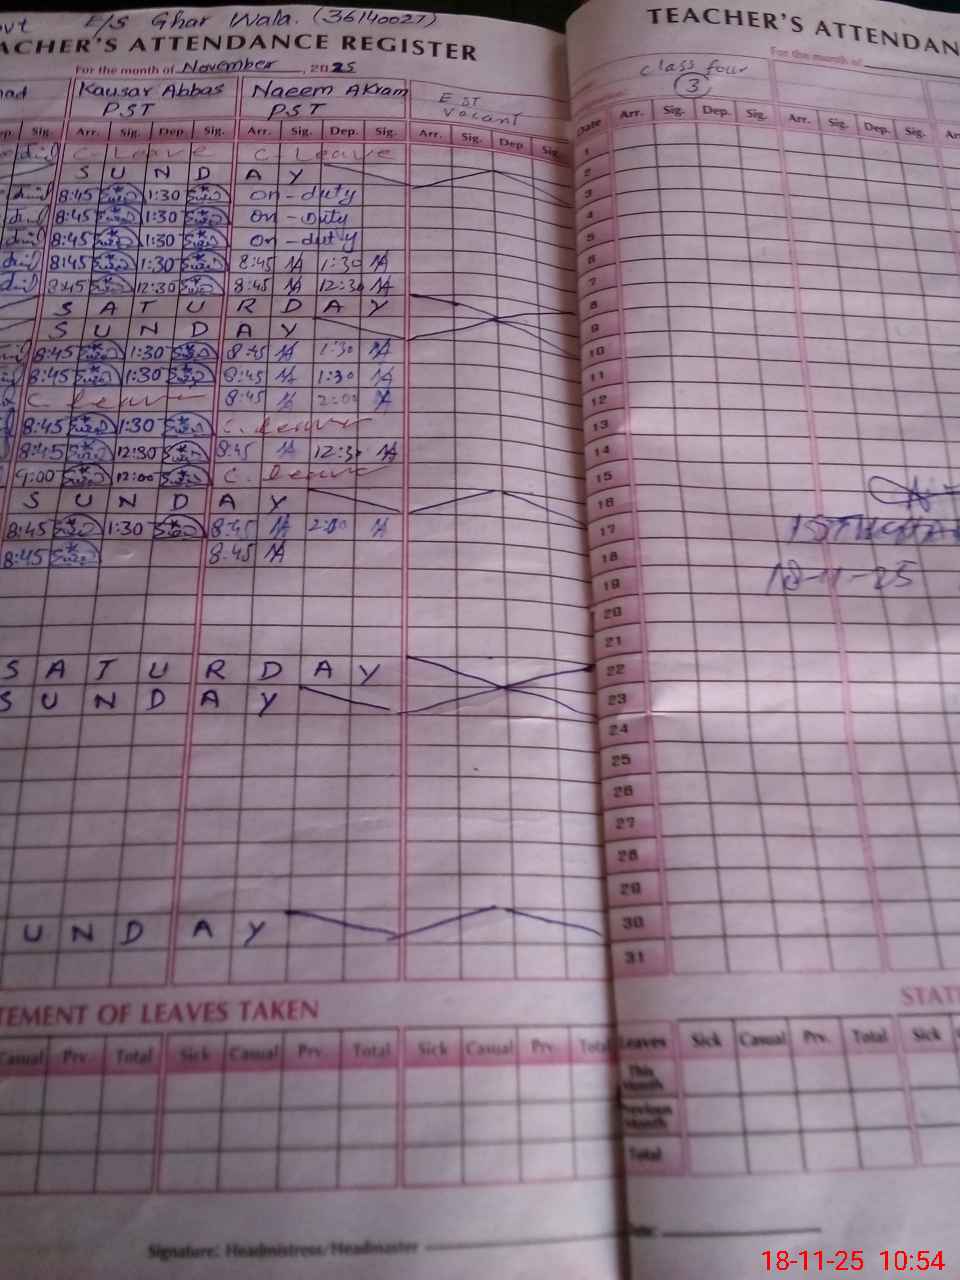 E/S Ghar Wala. (36140027)
ACHER'S ATTENDANCE REGISTER
For the month of November, 2025
Kausar Abbas Naeem Akram EST
PST PST Vacant
Sig. Arr. Sig. Dep. Sig. Arr. Sig. Dep. Sig. Arr. Sig. Dep. Sig.
C. Leave C. Leave
S U N D A Y
8:45 1:30 on-duty
8:45 1:30 on-duty
8:45 1:30 on-duty
8:45 1:30 8:45 NA 1:30 NA
8:45 12:30 8:45 NA 12:30 NA
S A T U R D A Y
S U N D A Y
8:45 1:30 8:45 NA 1:30 NA
8:45 1:30 8:45 NA 1:30 NA
C. leave 8:45 NA 2:00
8:45 1:30 C. leave
8:45 12:30 8:45 NA 12:30 NA
9:00 12:00 C. leave
S U N D A Y
8:45 1:30 8:45 NA 2:00 NA
8:45 8:45 NA
S A T U R D A Y
S U N D A Y
U N D A Y
TEMENT OF LEAVES TAKEN
Casual Prv. Total Sick Casual Prv. Total Sick Casual Prv. Total
Signature: Headmistress/Headmaster
TEACHER'S ATTENDAN
For the month of
class four
3
Date Arr. Sig. Dep. Sig. Arr. Sig. Dep. Sig.
1
2
3
4
5
6
7
8
9
10
11
12
13
14
15
16
17
18
19
20
21
22
23
24
25
26
27
28
29
30
31
18-11-25
STAT
Leaves Sick Casual Prv. Total Sick
This Month
Previous Month
Total
Date:
18-11-25 10:54